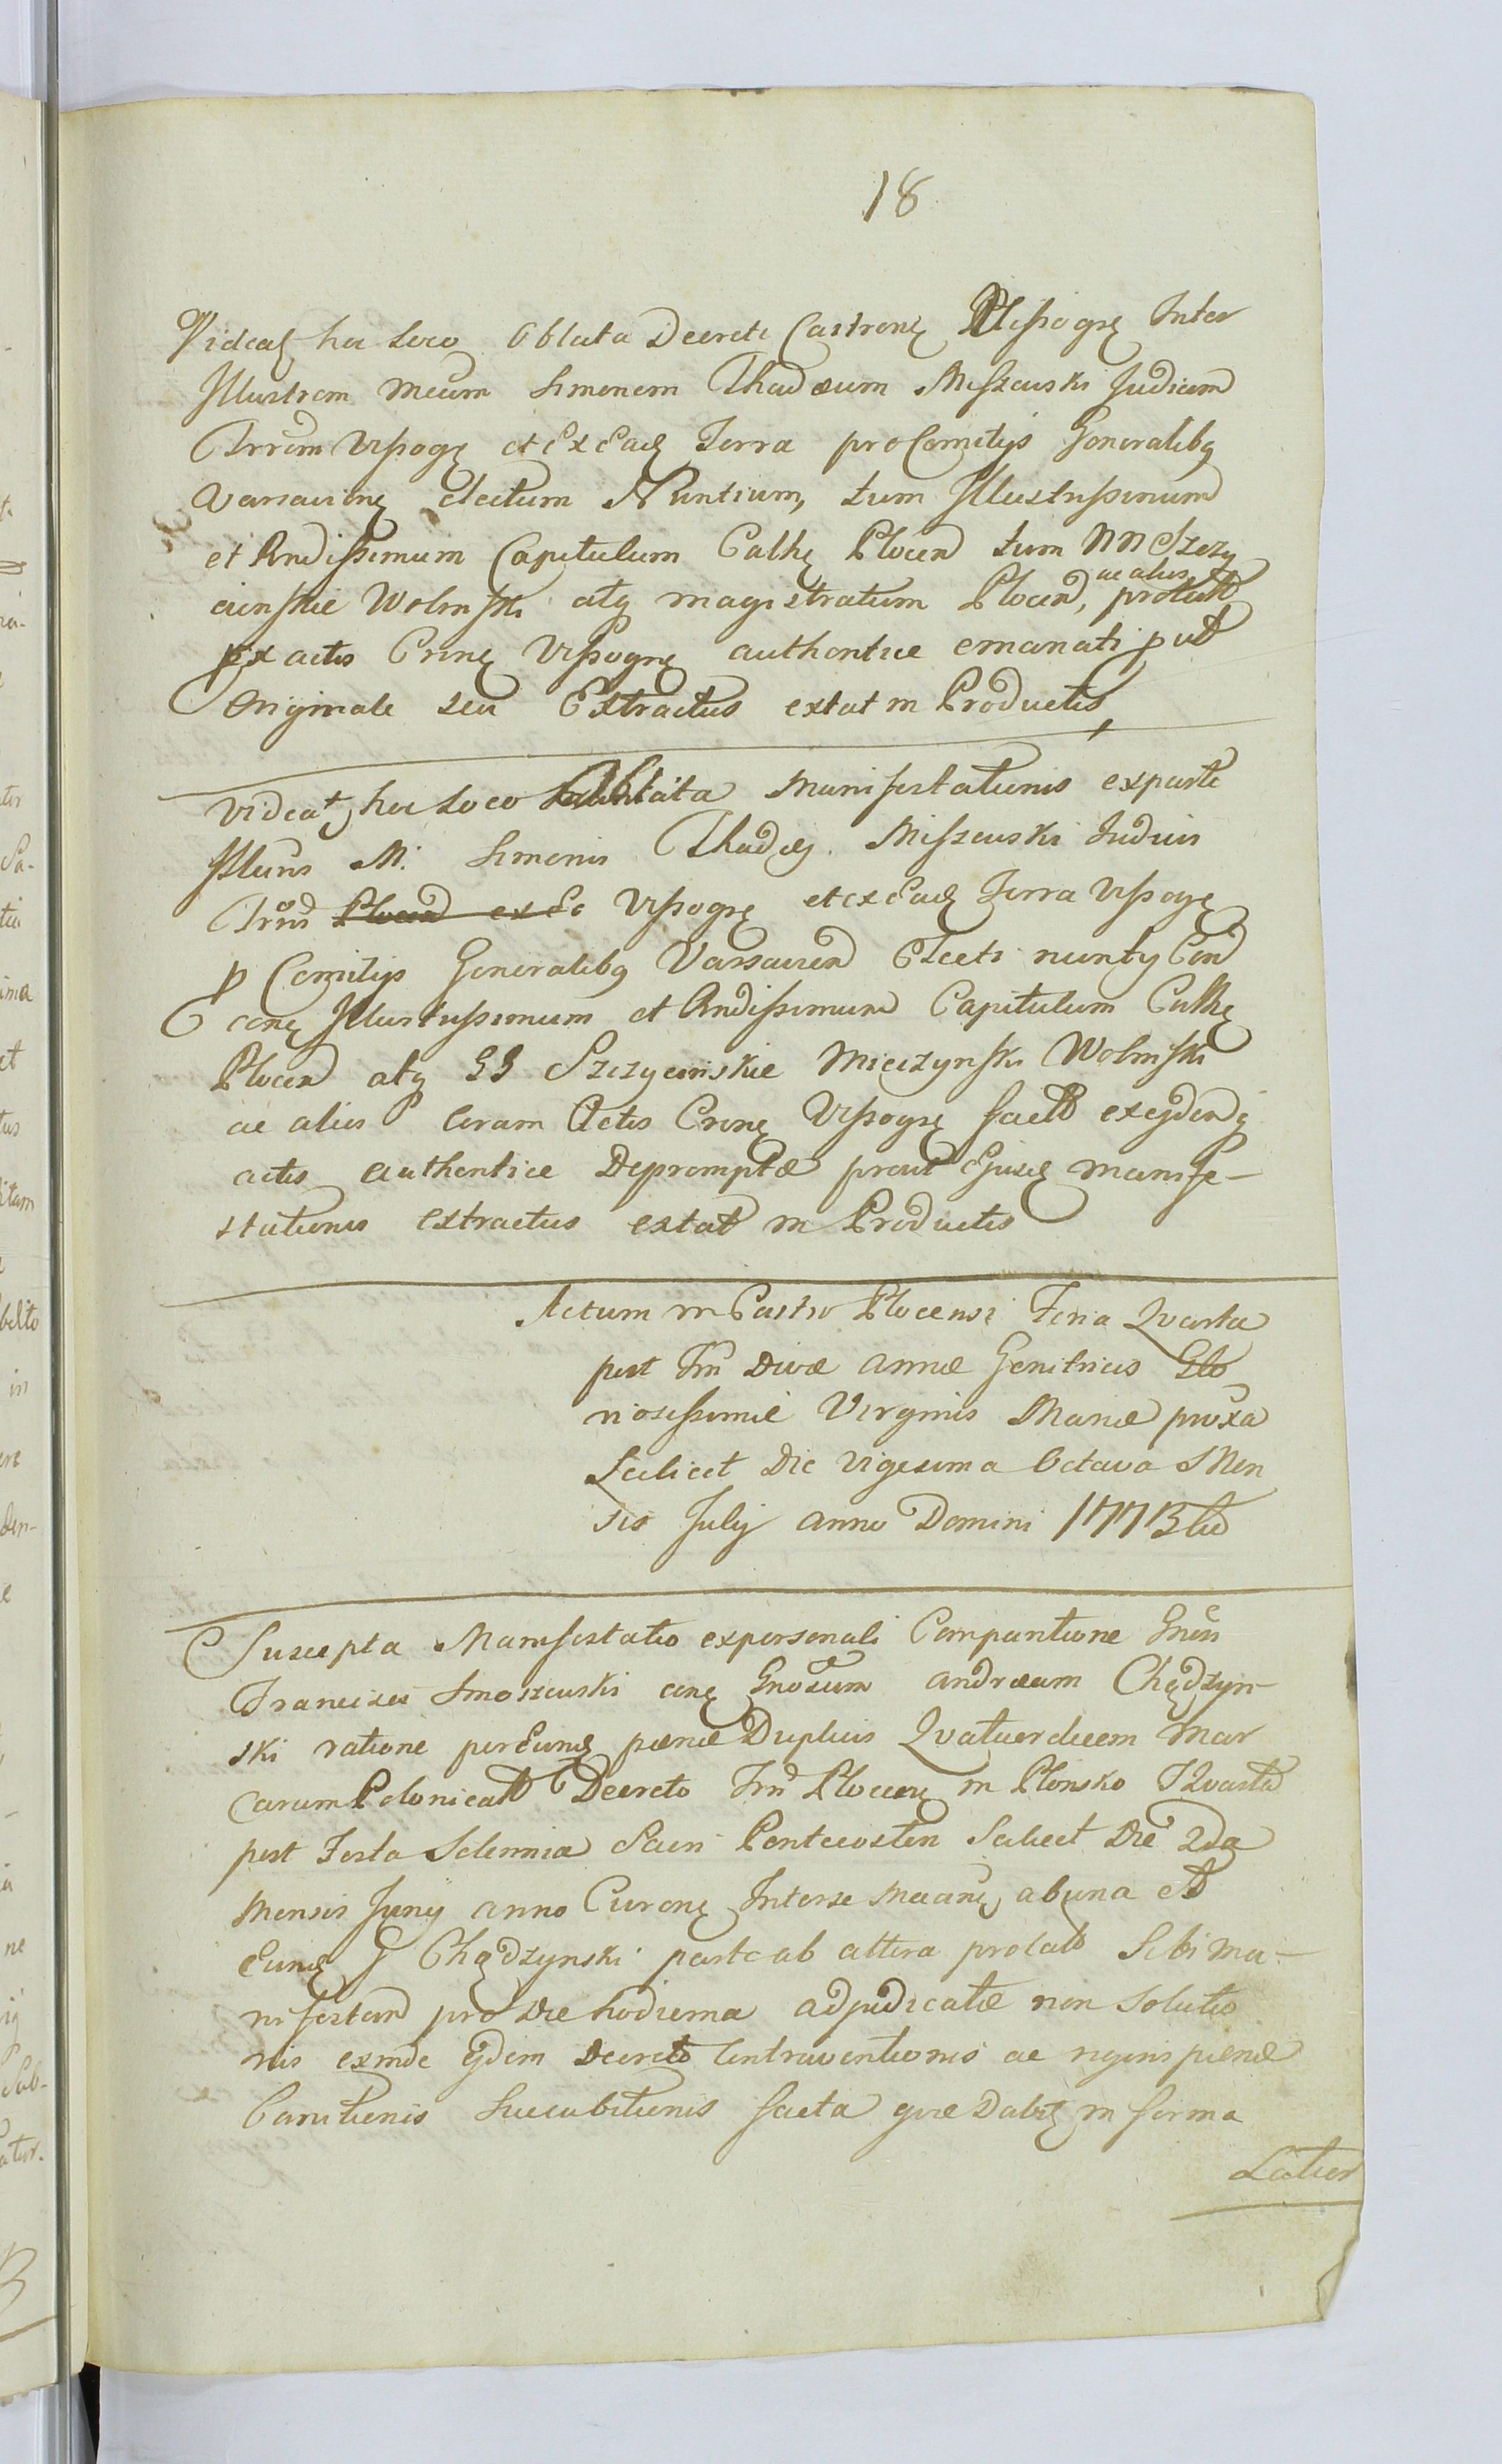 18
Videat hoc loco Oblata Decreti Castren Vissogr Inter
Illustrem Mcum Simonem Thadæum Miszewski Judicem
Trrem Vissogr et ex Ead Terra pro Comitijs Generalibq
Varsavien electum Nuntium, tum Illustrissimum
et Rndissimum Capitulum Cathe Plocen tum NN Szczy
cinskie Wolinski atq magistratum Plocen, ac alios prolat
ex actis Crins Vissogr authentice emanati put
Originale seu Extractus extat in Productis
Videat hoc loco Oblata Manifestationis exparte
Illuris M. Simonis Thadæj Miszewski Judicis
Trris Plocen ex Ea Vissogr et ex Ead Terra Vissogr
p Comitijs Generalibq Varsavien Electi nuntij Con
cone Illustrissimum et Rndissimum Capitulum Cathe
Plocen atq GG Szczycinskie Mieczynski Wolinski
ac alios Coram Actis Crins Vissogr fact exejsdem
actis authentice Depromptæ prout Ejusd manife-
stationis extractus extat in Productis
Actum in Castro Plocensi Feria Quarta
post Ftm Divæ Annæ Genitricis Glo
riosissimæ Virginis Mariæ proxa
Scilicet Die Vigesima Octava Men
sis Julij Anno Domini 1773tio
Suscepta Manifestatio expersonali Comparitione Gnosi
Francisci Smoszewski cone Gnosum Andræum Chądzyn-
ski ratione per Eund pœnæ Duplicis Quatuordecem Mar
carum Polonicall Decreto Trri Plocen in Plonsko F Quarta
post Festa Solennia Sacri Pentecosten Scilicet Die 2da
Mensis Junij anno Curren Interse Mcani abuna et
Eund G Chądzynski parte ab altera prolat Sibi Ma-
nifestan pro Die hodierna adjudicatæ non Solutio
nis exinde ejdem Decreto Contraventionis ac rigoris pœnæ
Banitionis Succubitionis facta quæ Dabit in forma
Latior